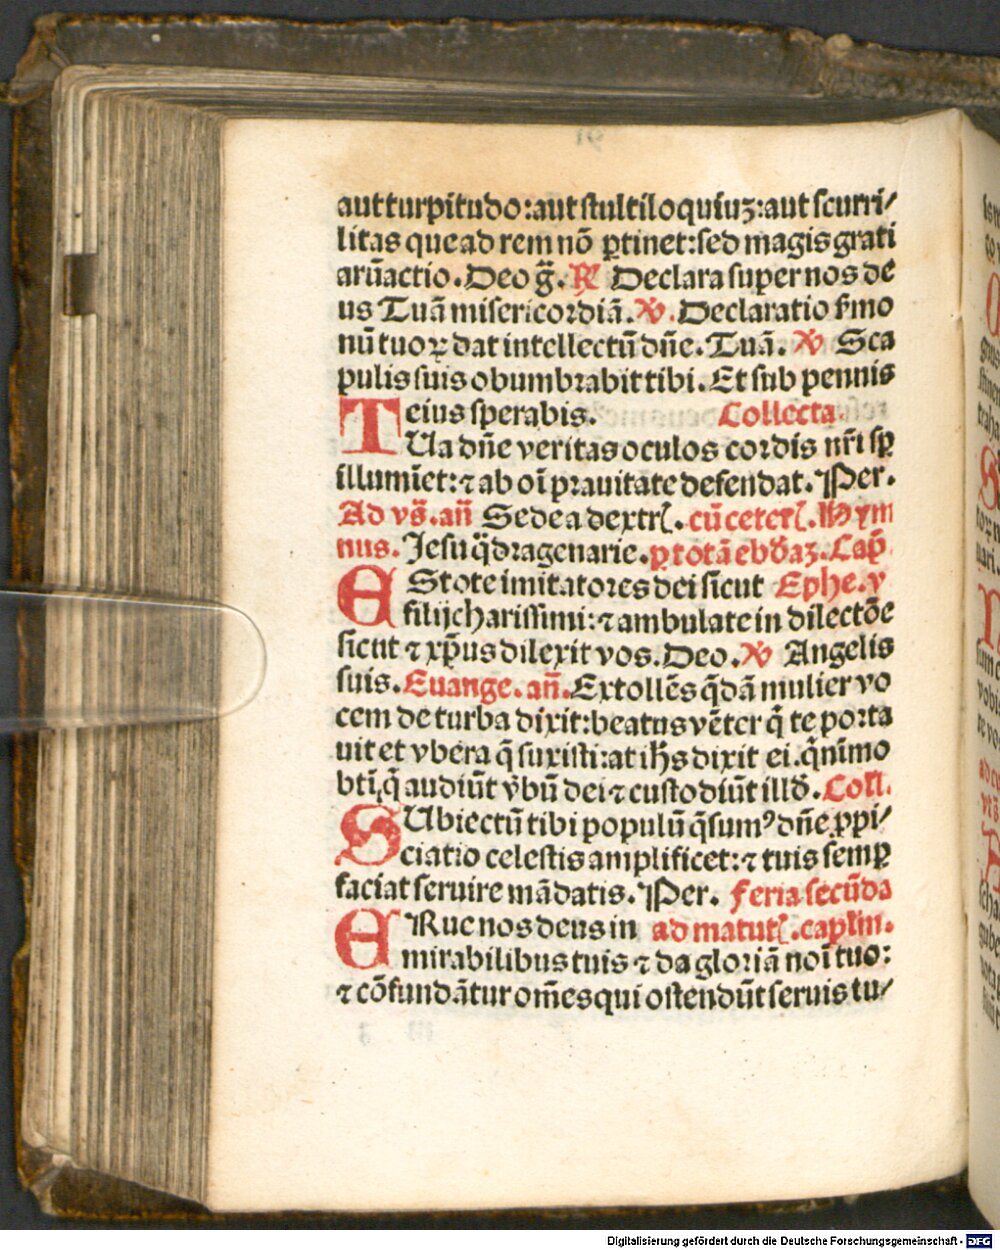 aut turpitudo: aut stultiloquiuʒ: aut scurri/
litas que ad rem nō ꝑtinet: sed magis grati
arū actio. Deo g̃. ℟ Declara super nos de
us Tuā misericordiā. ℣. Declaratio ẜmo
nū tuoꝝ dat intellectū dñe. Tuā. ℣ Sca
pulis suis obumbrabit tibi. Et sub pennis
eius sperabis. Collecta.
TUa dñe veritas oculos cordis nr̄i sꝑ
illumīet: ⁊ ab oī prauitate defendat. Per.
Ad vs̄. añ Sede a dextrꝭ. cū ceterꝭ. Hym
nus. Jesu q̈dragenarie. ꝑ totā ebd̄aʒ. Cap̄.
EStote imitatores dei sicut Ephe. v
filij charissimi: ⁊ ambulate in dilectōe
sicut ⁊ xp̄us dilexit vos. Deo. ℣ Angelis
suis. Euange. añ. Extollēs q̄dā mulier vo
cem de turba dixit: beatus vēter q̄ te porta
uit et vbera q̄ suxisti: at ih̄s dixit ei. q̄nimo
bt̄i q̄ audiūt v̄bū dei ⁊ custodiūt illd̄. Coll.
SUbiectū tibi populū q̄sumꝰ dñe ꝓpi/
ciatio celestis amplificet: ⁊ tuis semꝑ
faciat seruire mādatis. Per. Feria secūda
ERue nos deus in ad matutꝭ. capl̄m.
mirabilibus tuis ⁊ da gloriā noī tuo:
⁊ cōfundātur om̄es qui ostendūt seruis tu/
Digitalisierung gefördert durch die Deutsche Forschungsgemeinschaft - DFG